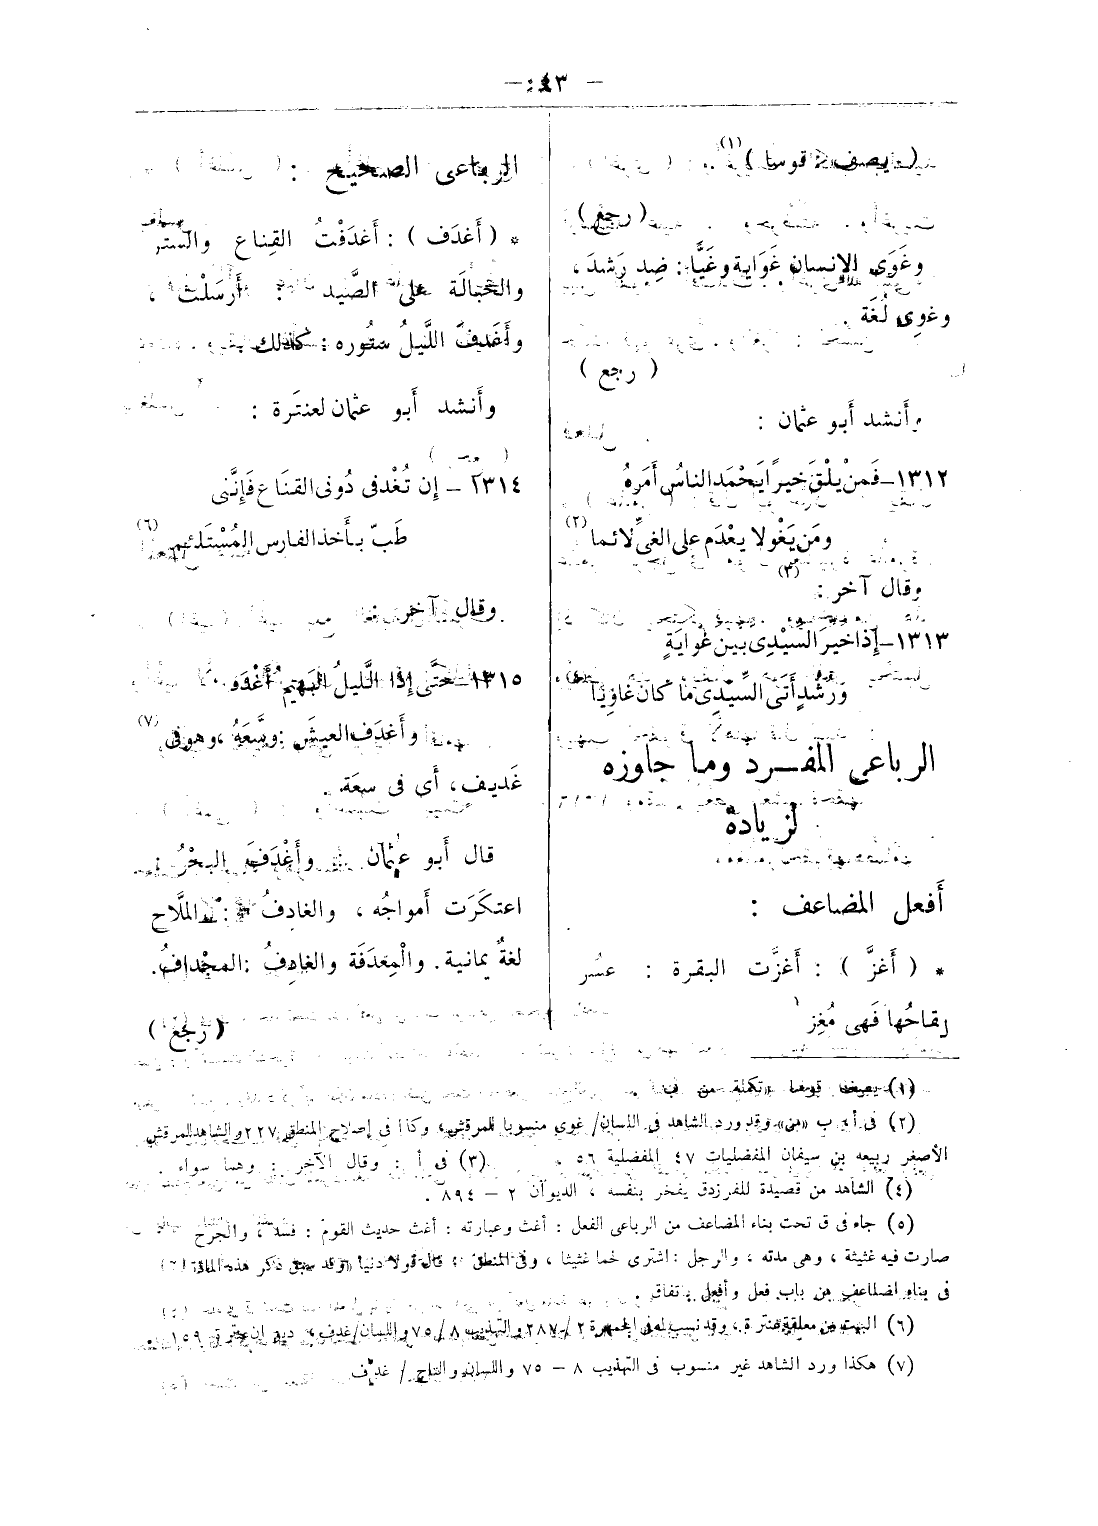 ( يصف قوسا )(١)
( رجع )
وغَوَى الإنسان غَوَاية وغَيًّا : ضِد رَشدَ ،
وغوِى لُغَة .
( رجع )
وأَنشد أَبو عثمان :
١٣١٢ – فَمنْ يلْقَ خيراً يَحْمَد الناسُ أَمرَهُ
ومَن يَغْو لا يعْدَم على الغىِّ لائما (٢)
وقال آخر (٣) :
١٣١٣ – إِذا خيرَ السيْدِى بين غوايَةٍ
ورشْدٍ أَتى السِّيْدِى ما كان غاوِيَا
الرباعى المفرد وما جاوزه
لزيادة
أَفعل المضاعف :
* ( أَغزَّ ) : أَغزَّت البقرة : عسُر
لِقاحُها فَهى مُغِز
الرباعى الصحيح :
* ( أَغدَف ) : أَغدَفْتُ القِناع والستر
والحَبالَة على الصَّيد : أَرسَلْت ،
وأَغدفَ اللَّيلُ ستُوره : كذلك
وأَنشد أَبو عثمان لعنتَرة :
١٣١٤ – إن تُغْدفى دُونى القنَاع فَإِنَّنى
طَبّ بأَخذ الفارس المُسْتَلْئم (٦)
وقال آخر :
١٣١٥ – حتَّى إِذَا الَّليلُ البَهيمُ أَغْدَف (٧)
وأَغدَف العيشَ : وسَّعَهُ ، وهو فى
غَديف ، أَى فى سعَة .
قال أَبو عثمان : وأَغْدَفَ البحْرُ :
اعتكَرَت أَمواجُه ، والغادِفُ : المَلَّاح
لغةٌ يمانية . والْمِغدَفَة والغادِفُ : المجْدافُ .
( رجع )
(١) يصف قوسا « تكملة من ب
(٢) فى أ ، ب « من » وقد ورد الشاهد فى اللسان/ غوى منسوبا للمرقش ، وكذا فى إصلاح المنطق ٢٢٧ والشاهد للمرقش
الأصغر ربيعه بن سيفان المفضليات ٤٧ المفضلية ٥٦ . (٣) فى أ : وقال الآخر : وهما سواء .
(٤) الشاهد من قصيدة للفرزدق يفخر بنفسه ، الديوان ٢ – ٨٩٤ .
(٥) جاء فى ق تحت بناء المضاعف من الرباعى الفعل : أغث وعبارته : أغث حديث القوم : فسد ، والجرح
صارت فيه غثيثة ، وهى مدته ، والرجل : اشترى لحما غثيثا ، وفى المنطق : قال قولا دنيا « وقد سبق ذكر هذه المادة
فى بناء المضاعف من باب فعل وأفعل باتفاق .
(٦) البيت من معلقة عنترة ، وقد نسب له فى الجمهرة ٢ /٢٨٧ والتهذيب ٨ /٧٥ واللسان/غدف ، ديوان عنترة ١٥٩ .
(٧) هكذا ورد الشاهد غير منسوب فى التهذيب ٨ – ٧٥ واللسان والتاج / غدف